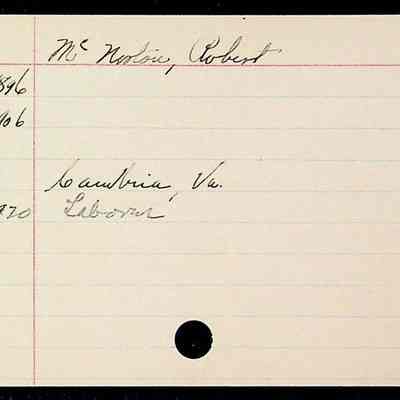 Mc Norton, Robert
896
906
Cambria, Va.
920 Laborer